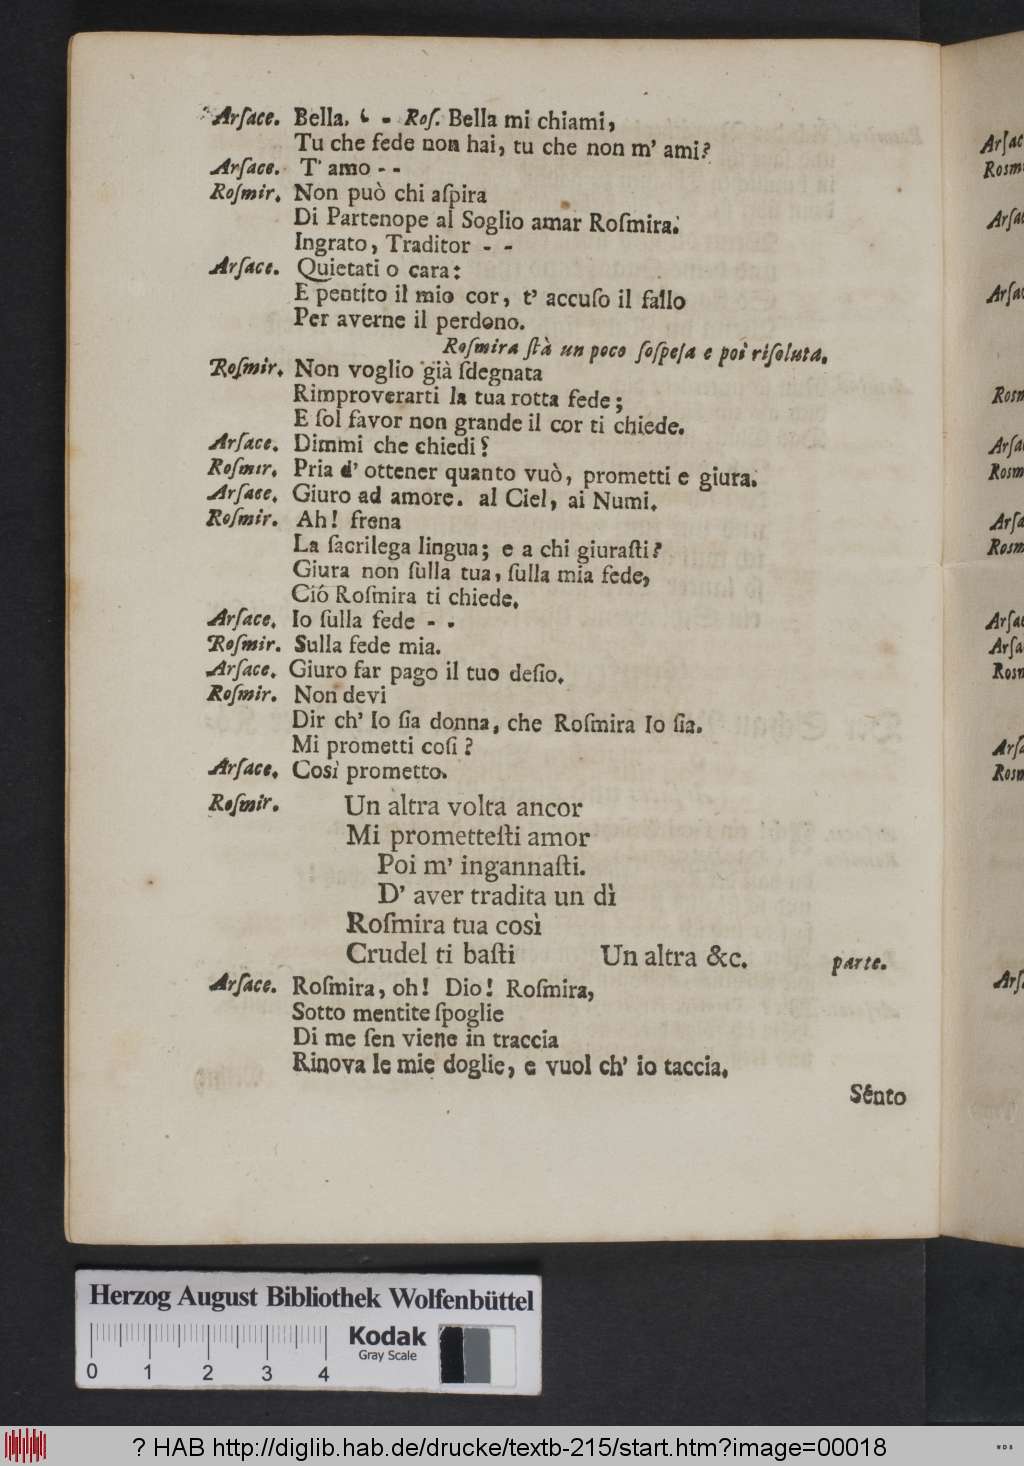 Arſace. Bella. - - Roſ. Bella mi chiami,
Tu che fede non hai, tu che non m' ami?
Arſace. T' amo - -
Roſmir. Non può chi aſpira
Di Partenope al Soglio amar Roſmira.
Ingrato, Traditor - -
Arſace. Quietati o cara:
E pentito il mio cor, t' accuſo il fallo
Per averne il perdono.
Roſmira ſtà un poco ſoſpeſa e poi riſoluta.
Roſmir. Non voglio già ſdegnata
Rimproverarti la tua rotta fede;
E ſol favor non grande il cor ti chiede.
Arſace. Dimmi che chiedi?
Roſmir. Pria d' ottener quanto vuò, prometti e giura.
Arſace. Giuro ad amore. al Ciel, ai Numi.
Roſmir. Ah! frena
La ſacrilega lingua; e a chi giuraſti?
Giura non ſulla tua, ſulla mia fede,
Ció Roſmira ti chiede.
Arſace. Io ſulla fede - -
Roſmir. Sulla fede mia.
Arſace. Giuro far pago il tuo deſio.
Roſmir. Non devi
Dir ch' Io ſia donna, che Roſmira Io ſia.
Mi prometti coſi?
Arſace. Così prometto.
Roſmir. Un altra volta ancor
Mi prometteſti amor
Poi m' ingannaſti.
D' aver tradita un dì
Roſmira tua così
Crudel ti baſti Un altra &c. parte.
Arſace. Roſmira, oh! Dio! Roſmira,
Sotto mentite ſpoglie
Di me ſen viene in traccia
Rinova le mie doglie, e vuol ch' io taccia.
Sénto
Arſac
Roſm
Arſac
Arſac
Roſm
Arſa
Roſm
Arſa
Roſm
Arſac
Arſa
Roſm
Arſa
Roſm
Arſ
Herzog August Bibliothek Wolfenbüttel
Kodak
Gray Scale
0 1 2 3 4
? HAB http://diglib.hab.de/drucke/textb-215/start.htm?image=00018